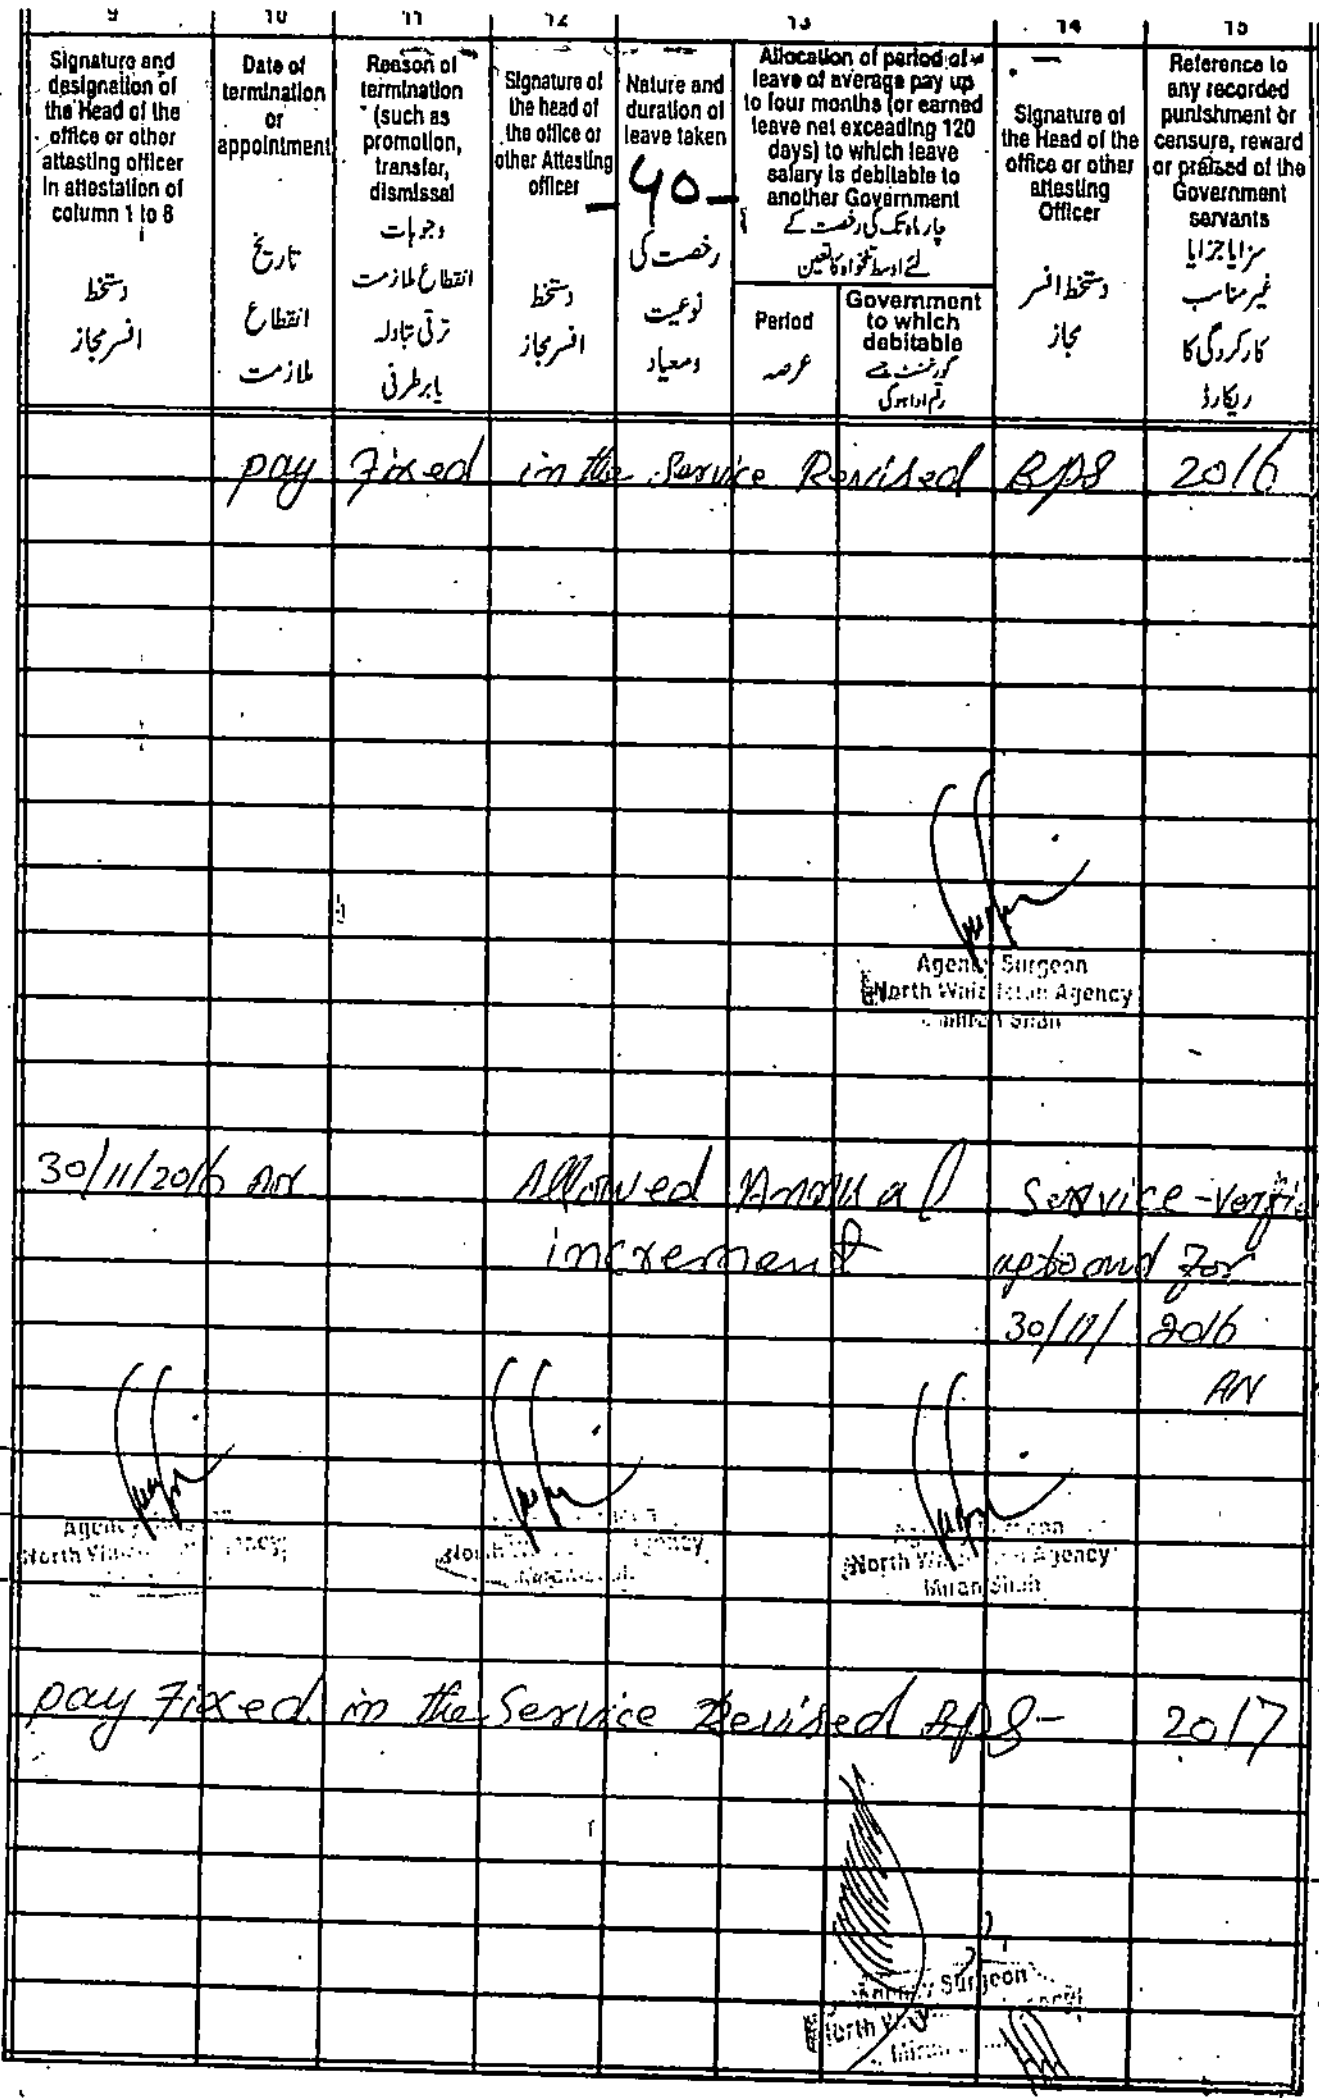 9 10 11 12 13 14 15
Signature and
designation of
the Head of the
office or other
attesting officer
in attestation of
column 1 to 8
دستخط
افسر مجاز
Date of
termination
or
appointment
تاریخ
انقطاع
ملازمت
Reason of
termination
(such as
promotion,
transfer,
dismissal
وجوہات
انقطاع ملازمت
ترقی تبادلہ
یا برطرفی
Signature of
the head of
the office or
other Attesting
officer
دستخط
افسر مجاز
Nature and
duration of
leave taken
رخصت کی
نوعیت
ومعیاد
Allocation of period of
leave of average pay up
to four months (or earned
leave net exceeding 120
days) to which leave
salary is debitable to
another Government
چار ماہ تک کی رخصت کے
لئے اوسط تنخواہ کا تعین
Period
عرصہ
Government
to which
debitable
گورنمنٹ جسے
رقم ادا ہوگی
Signature of
the Head of the
office or other
attesting
Officer
دستخط افسر
مجاز
Reference to
any recorded
punishment or
censure, reward
or praised of the
Government
servants
سزا یا جزا یا
غیر مناسب
کارکردگی کا
ریکارڈ
pay Fixed in the Service Revised BPS 2016
Agency Surgeon
North Waziristan Agency
30/11/2016 AN Allowed Annual Service-verifi
increment upto and For
30/11/2016
AN
Agency
North
North Agency
North Agency
Miran Shah
pay Fixed in the Service Revised BPS- 2017
Agency Surgeon
North
Miran